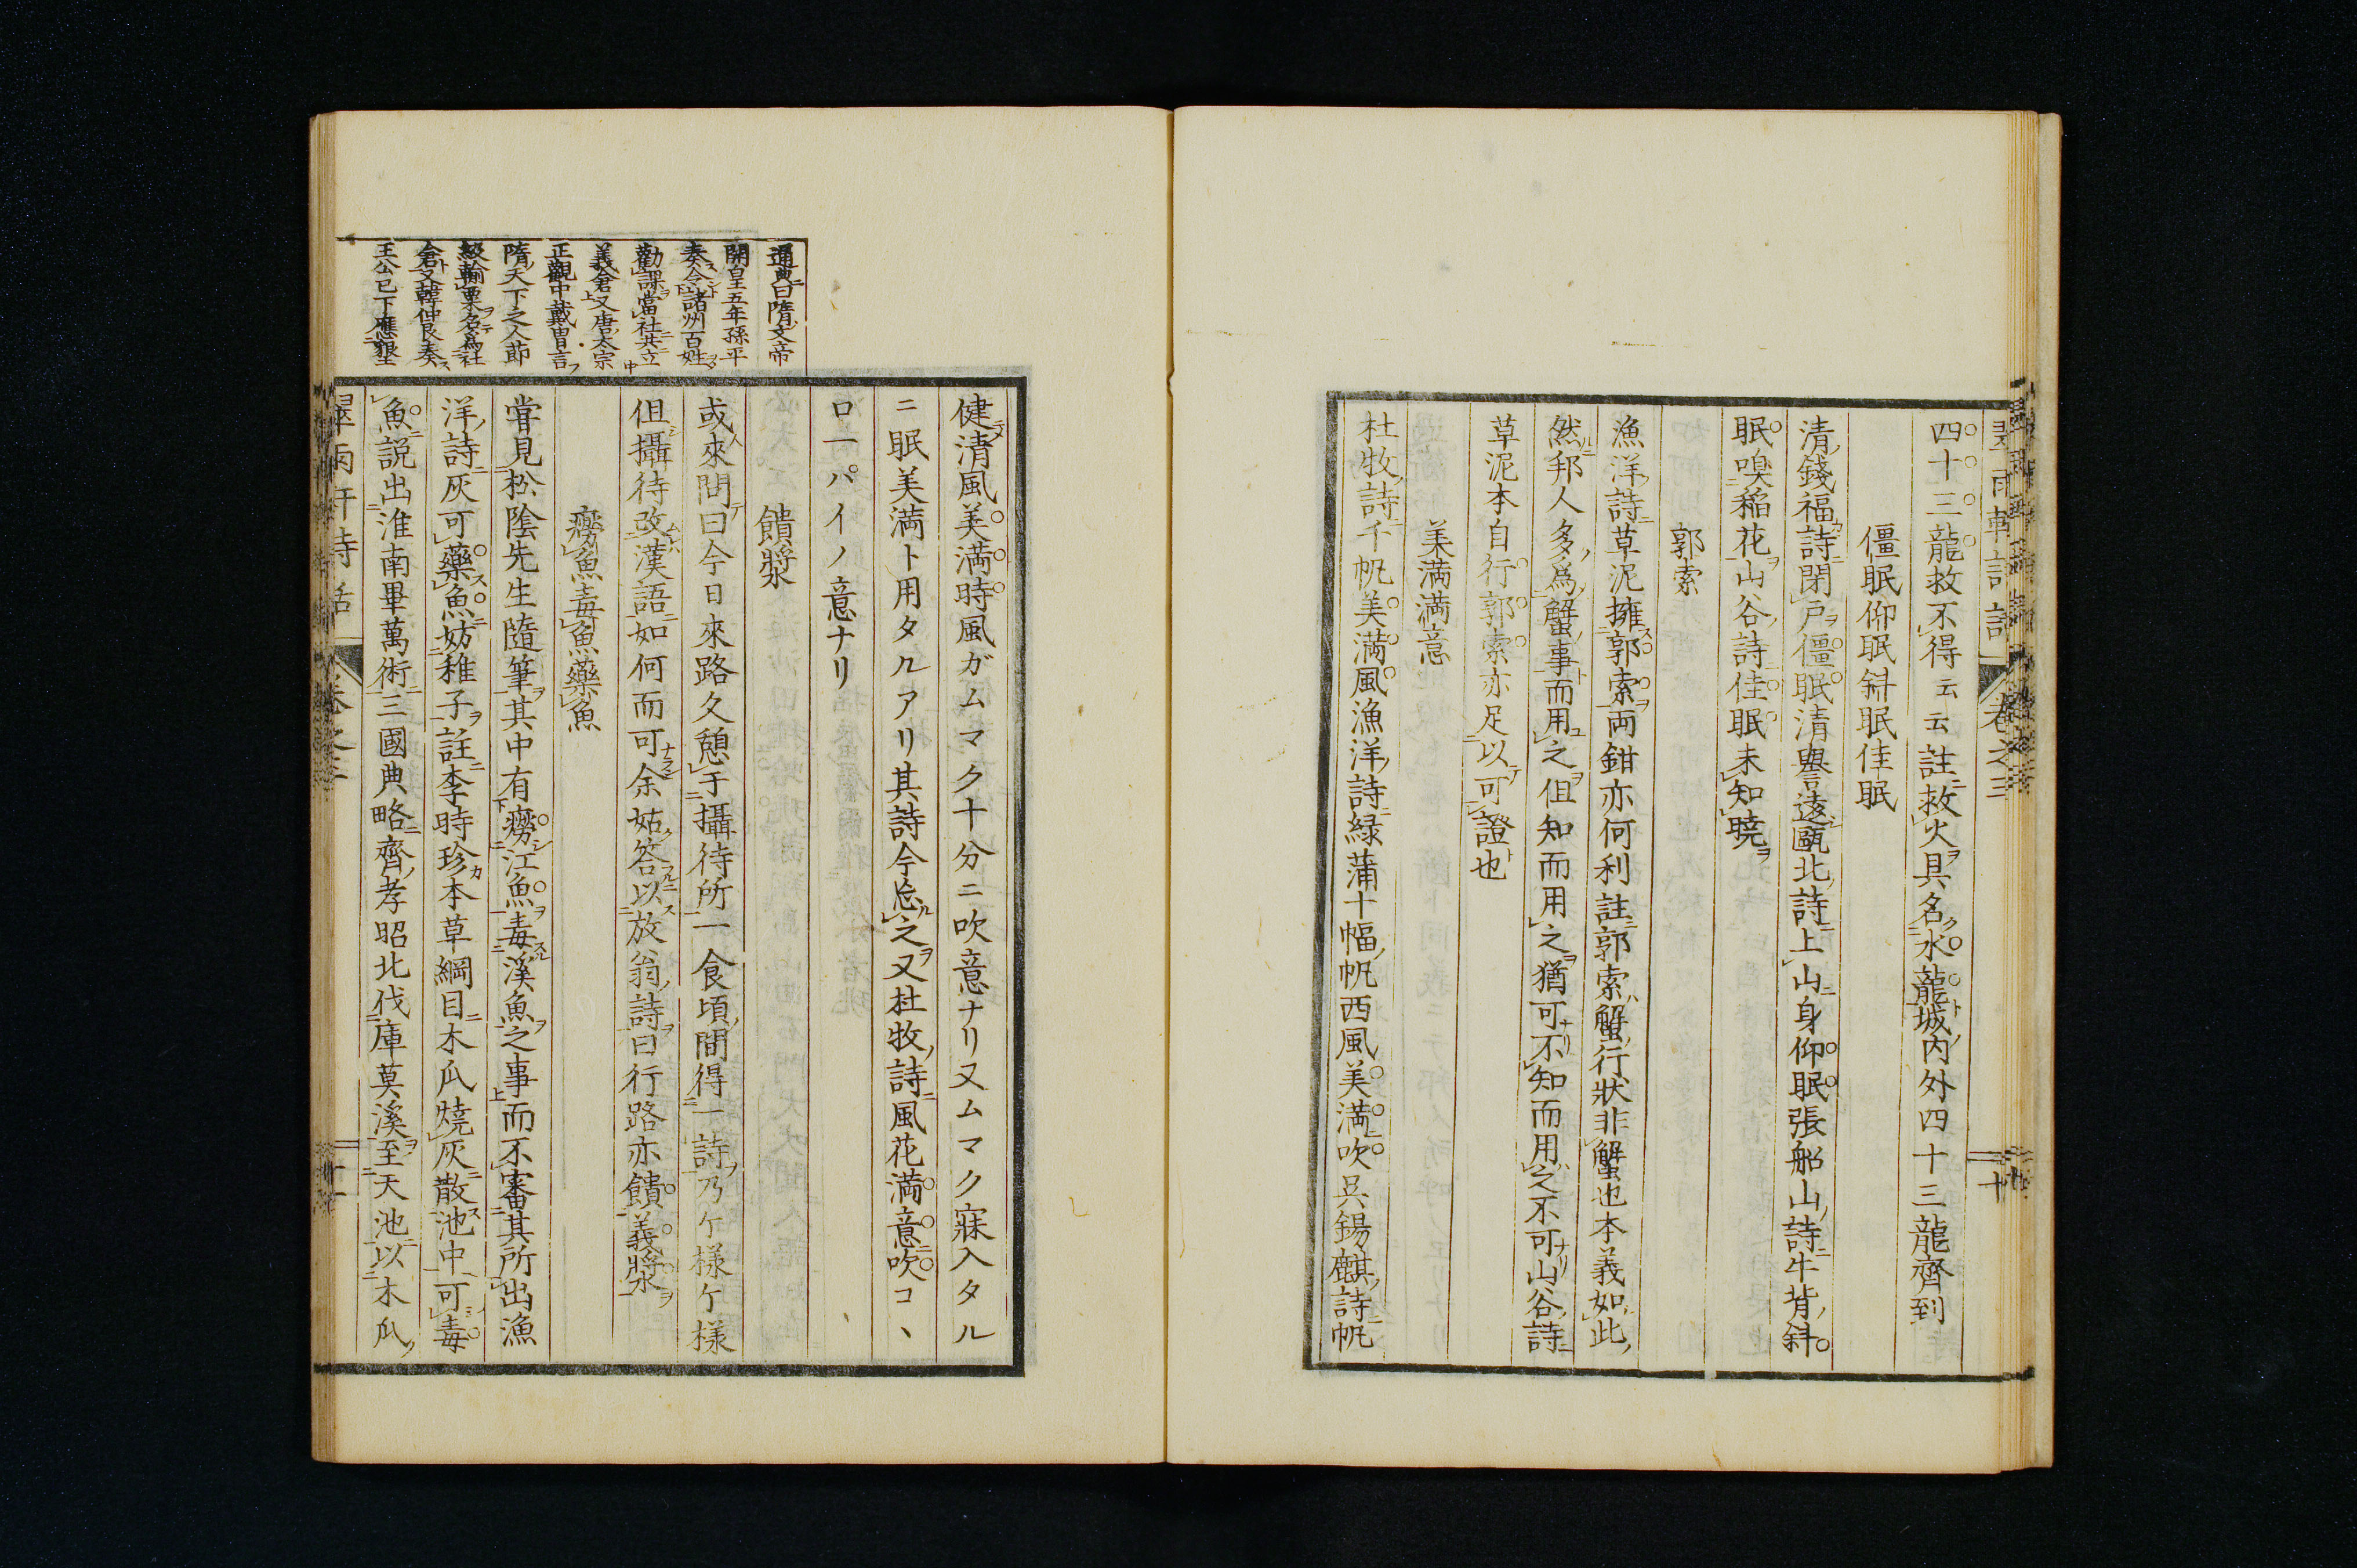 四十三龍救不得云云註救火具名水龍城内外四十三龍齊到
僵眠仰眠斜眠佳眠
清錢福詩閉戸僵眠清譽遠甌北詩上山身仰眠張船山詩牛背斜
眠嗅稲花山谷詩佳眠未知暁
郭索
漁洋詩草泥擁郭索両鉗亦何利註郭索蟹行狀非蟹也本義如此
然邦人多爲蟹事而用之但知而用之猶可不知而用之不可山谷詩
草泥本自行郭索亦足以可證也
美満満意
杜牧詩千帆美満風漁洋詩緑蒲十幅帆西風美満吹呉錫麒詩帆
健清風美満時風ガムマク十分ニ吹意ナリ又ムマク寐入タル
ニ眠美満ト用タルアリ其詩今忘之又杜牧詩風花満意吹コヽ
ロ一パイノ意ナリ
饋漿
或來問曰今日來路久憩于攝待所一食頃間得一詩乃ケ様ケ様
但攝待改漢語如何而可余姑答以放翁詩曰行路亦饋義漿
癆魚毒魚藥魚
嘗見松陰先生隨筆其中有癆江魚毒溪魚之事而不審其所出漁
洋詩灰可藥魚妨稚子註李時珍本草綱目木瓜燒灰散池中可毒
魚説出淮南畢萬術三國典略齊孝昭北伐庫莫溪至天池以木瓜
通典曰隋文帝
開皇五年孫平
奏令諸州百姓
勸課當社共立
義倉又唐太宗
正觀中戴冑言
隋天下之人節
級輸粟名爲社
倉又韓仲良奏
王公已下應墾
卷之三
十